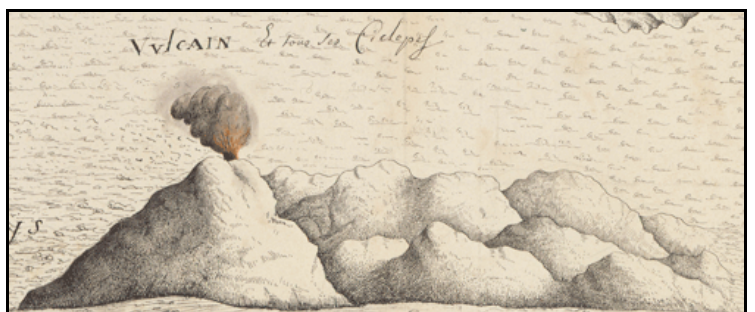 VVLCAIN Et tous Ses Ciclopes